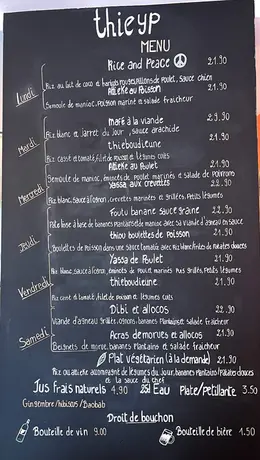 thieyp
MENU
Rice and Peace 21.90
Lundi
Riz au lait de coco et haricots rouges, pillons de Poulet, Sauce chien
Attieke au Poisson 21.90
Semoule de manioc, Poisson mariné et salade fraicheur
Mafé à la viande 23.90
Mardi
Riz blanc et Jarret du Jour, sauce arachide
thieboudieune 21.90
Riz cassé et tomate, filet de poisson et legumes cuits
Attieke au Poulet 21.90
Mercredi
Semoule de manioc, émincés de Poulet marinés et salade de Poivrons
Yassa aux crevettes 22.90
Riz blanc, sauce à l'oignon, crevettes marinées et grillées, Petits légumes
Foutu banane sauce graine 22.90
Jeudi
thiou boulettes de Poisson 21.90
Boulettes de Poisson dans une sauce tomate avec Riz blanc/frites de Patates douces
Yassa de Poulet 21.90
Vendredi
Riz blanc, sauce à l'oignon, émincés de poulet marinés Puis grillés, Petits légumes
thieboudieune 21.90
Riz cassé à tomate, filet de poisson et légumes cuits
Dibi et allocos 22.90
Samedi
Viande d'agneau grillée, oignons, bananes Plantains et salade fraicheur
Acras de morues et allocos 21.90
Beignets de morue, bananes Plantains et salade fraicheur
Plat végétarien (à la demande) 21.90
Riz ou attieke accompagné de légumes du Jour, bananes Plantains/Patates douces
et la sauce du chef
Jus frais naturels 4.90 25cl Eau Plate/Petillante 3.50
Gingembre/hibiscus/Baobab
Droit de bouchon
Bouteille de vin 9.00 Bouteille de bière 1.50